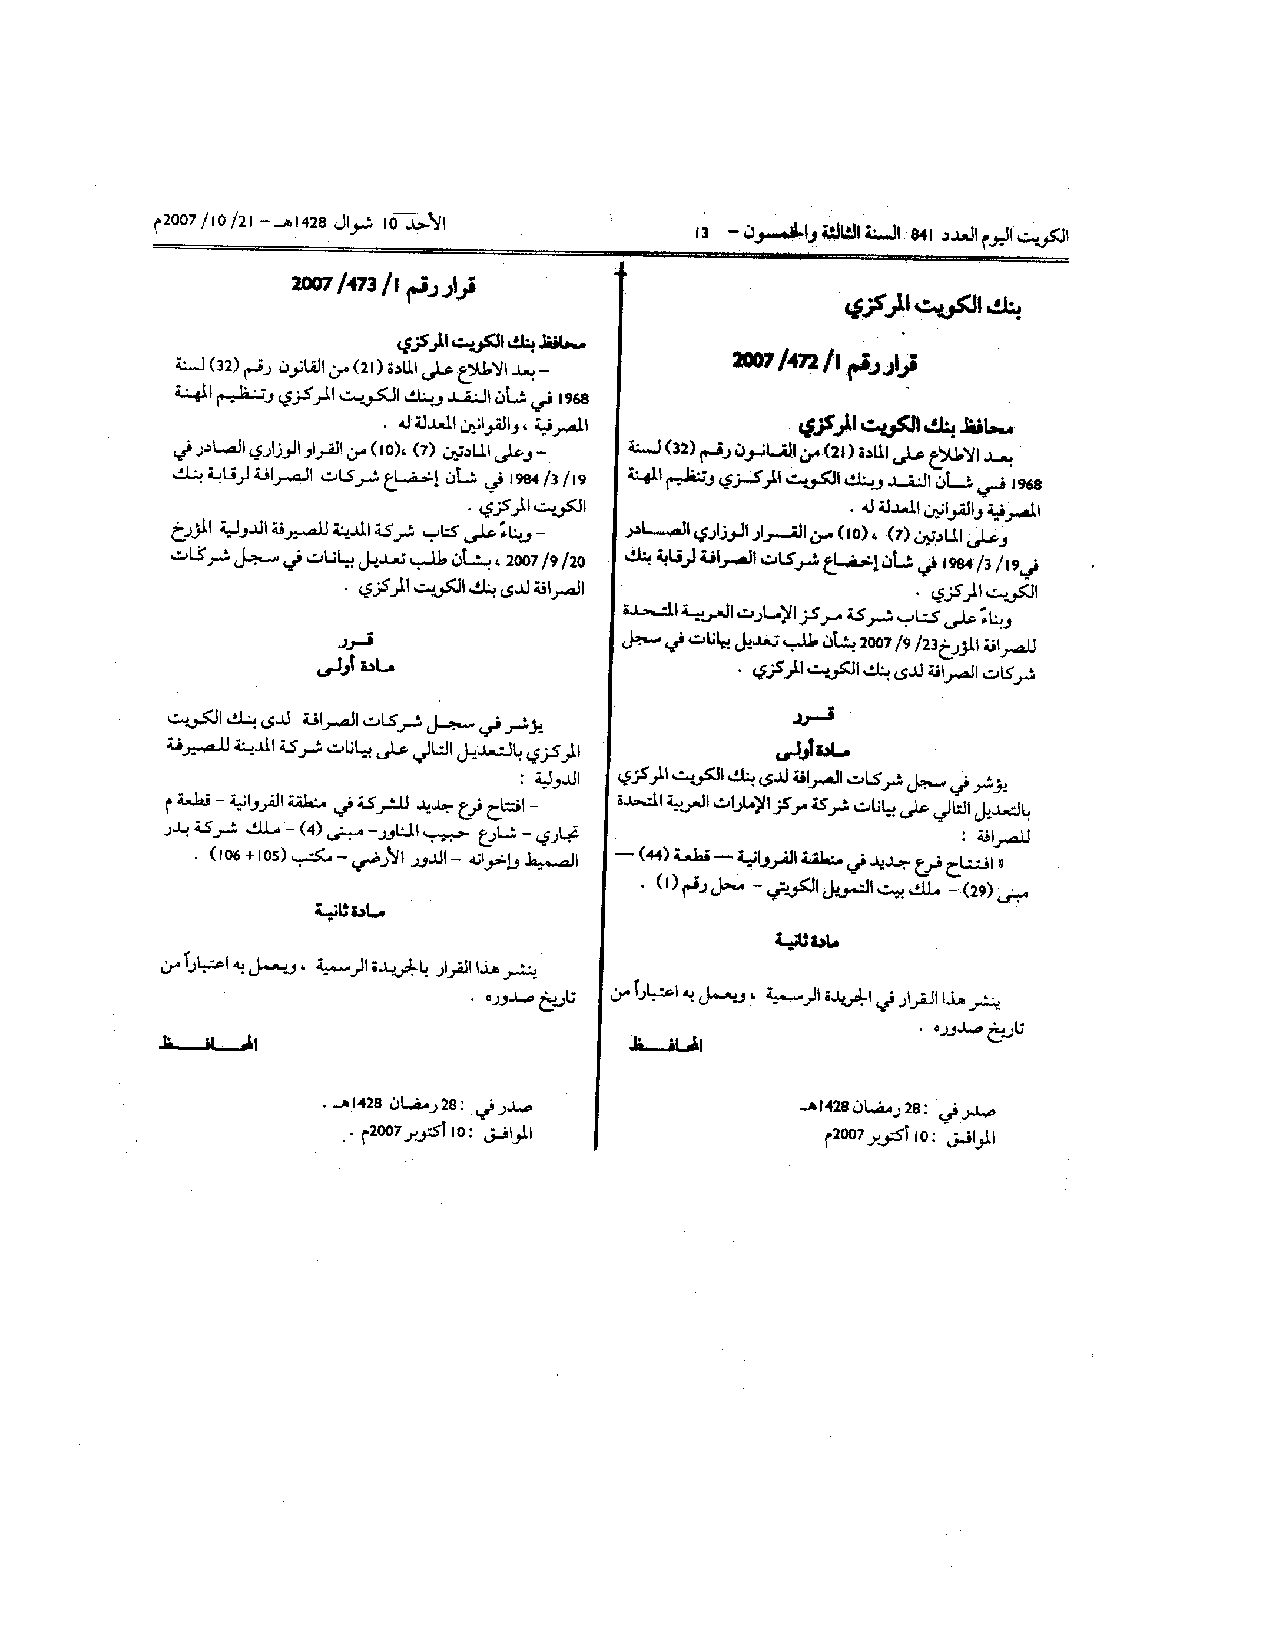 الكويت اليوم العدد 841 السنة الثالثة والخمسون – 13
الأحد 10 شوال 1428هـ – 21/ 10/ 2007م
بنك الكويت المركزي
قرار رقم 1/ 472/ 2007
محافظ بنك الكويت المركزي
بعد الاطلاع على المادة (21) من القانون رقم (32) لسنة
1968 في شأن النقد وبنك الكويت المركزي وتنظيم المهنة
المصرفية والقوانين المعدلة له .
وعلى المادتين (7) ، (10) من القرار الوزاري الصادر
في19/ 3/ 1984 في شأن إخضاع شركات الصرافة لرقابة بنك
الكويت المركزي .
وبناءً على كتاب شركة مركز الإمارت العربية المتحدة
للصرافة المؤرخ23/ 9/ 2007 بشأن طلب تعديل بيانات في سجل
شركات الصرافة لدى بنك الكويت المركزي .
قـرر
مـادة أولى
يؤشر في سجل شركات الصرافة لدى بنك الكويت المركزي
بالتعديل التالي على بيانات شركة مركز الإمارات العربية المتحدة
للصرافة :
¤ افتتاح فرع جديد في منطقة الفروانية – قطعة (44) –
مبنى (29) – ملك بيت التمويل الكويتي – محل رقم (1) .
مادة ثانية
ينشر هذا القرار في الجريدة الرسمية ، ويعمل به اعتباراً من
تاريخ صدوره .
المحـافــظ
صدر في : 28 رمضان 1428هـ
الموافق : 10 أكتوبر 2007م
قرار رقم 1/ 473/ 2007
محافظ بنك الكويت المركزي
– بعد الاطلاع على المادة (21) من القانون رقم (32) لسنة
1968 في شأن النقد وبنك الكويت المركزي وتنظيم المهنة
المصرفية ، والقوانين المعدلة له .
– وعلى المادتين (7) ،(10) من القرار الوزاري الصادر في
19/ 3/ 1984 في شأن إخضاع شركات الصرافة لرقابة بنك
الكويت المركزي .
– وبناءً على كتاب شركة المدينة للصيرفة الدولية المؤرخ
20/ 9/ 2007 ، بشأن طلب تعديل بيانات في سجل شركات
الصرافة لدى بنك الكويت المركزي .
قــرر
مـادة أولى
يؤشر في سجل شركات الصرافة لدى بنك الكويت
المركزي بالتعديل التالي على بيانات شركة المدينة للصيرفة
الدولية :
– افتتاح فرع جديد للشركة في منطقة الفروانية – قطعة م
تجاري – شارع حبيب المناور– مبنى (4) – ملك شركة بدر
الصميط وإخوانه – الدور الأرضي – مكتب (105 + 106) .
مـادة ثانية
ينشر هذا القرار بالجريدة الرسمية ، ويعمل به اعتباراً من
تاريخ صدوره .
المحــافـــظ
صدر في : 28 رمضان 1428هـ .
الموافق : 10 أكتوبر 2007م .